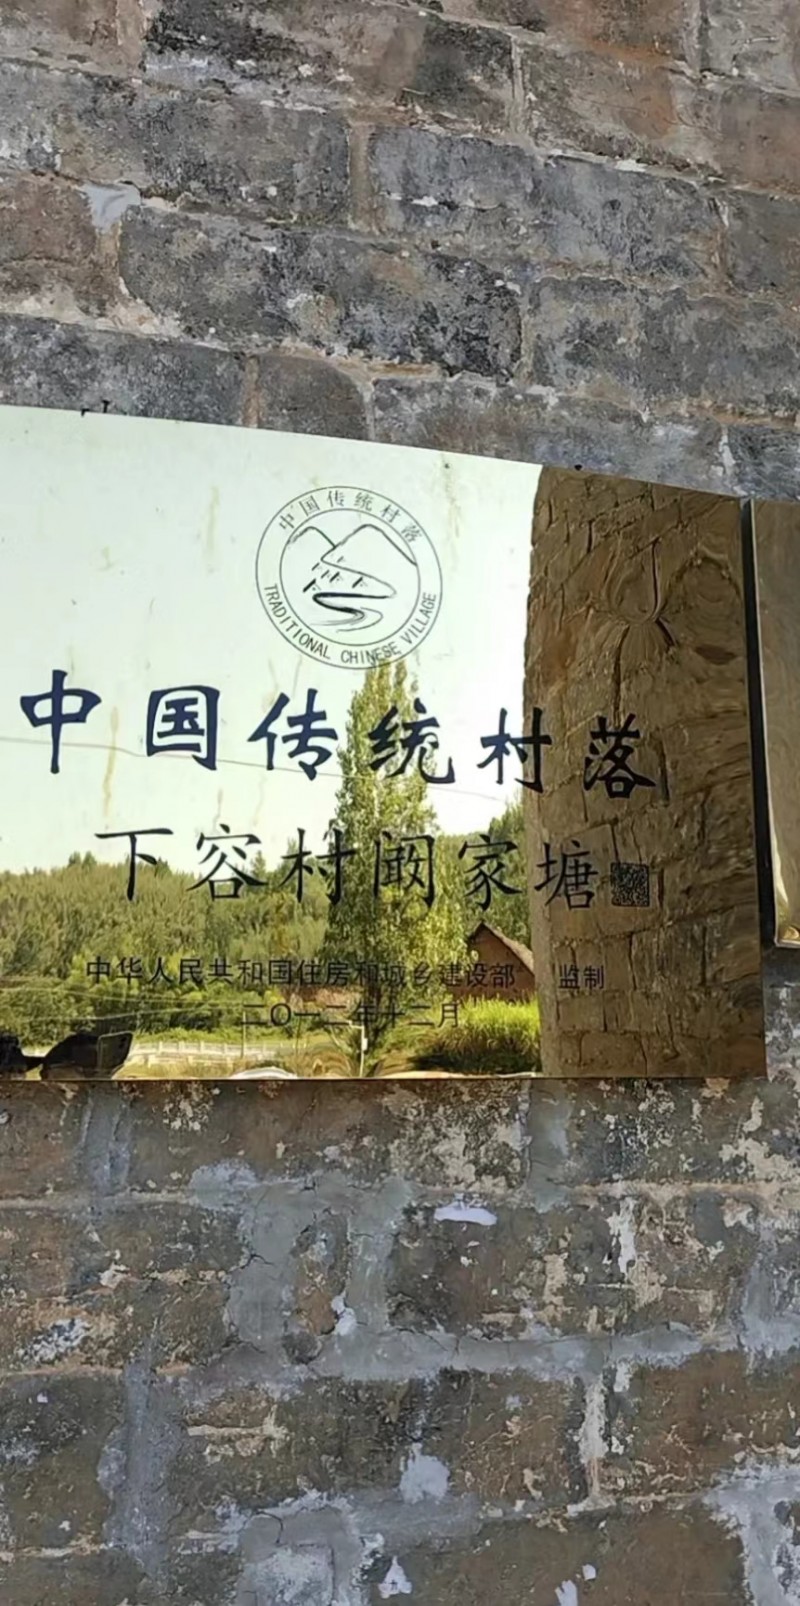 中国传统村落
TRADITIONAL CHINESE VILLAGE
中国传统村落
下容村阚家塘
中华人民共和国住房和城乡建设部 监制
二〇一二年十二月